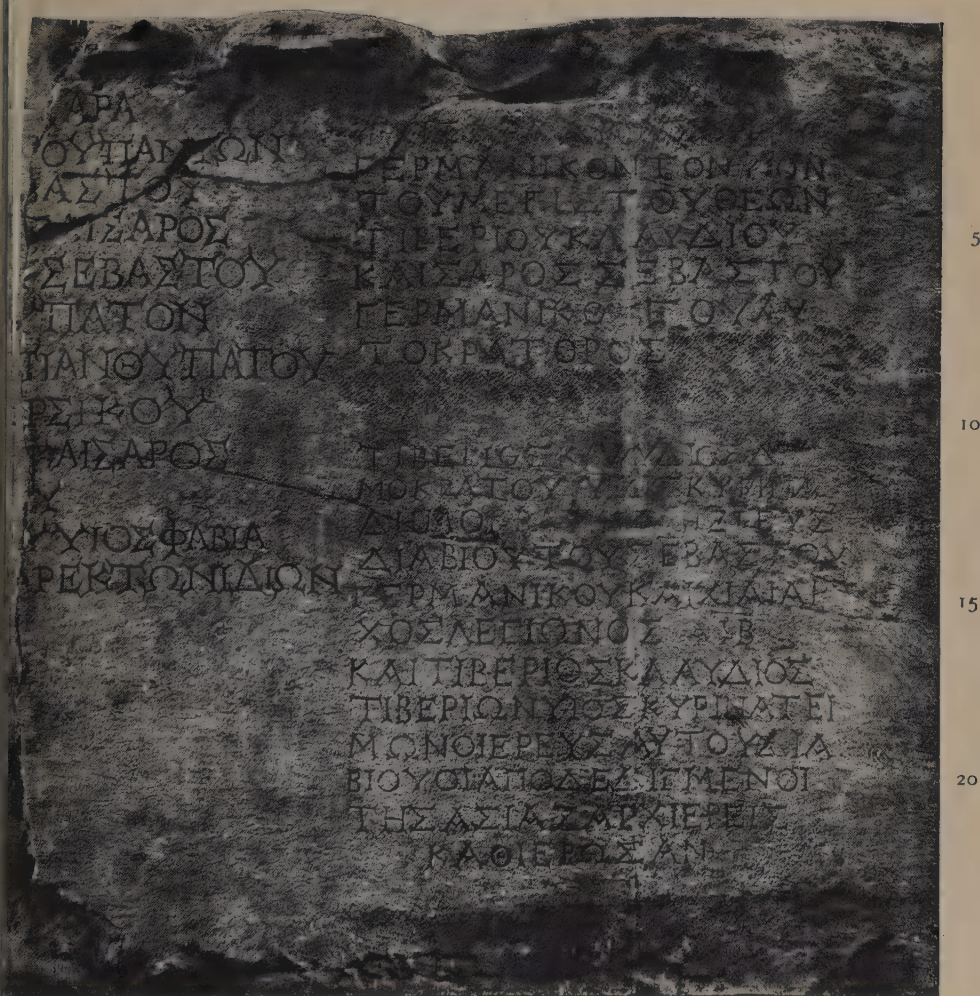 ΑΡΑ
ΟΥΠΑΝΤΩΝ
ΑΣΤΟΥ
ΑΙΣΑΡΟΣ
ΣΕΒΑΣΤΟΥ
ΠΑΤΟΝ
ΠΑΝΘΥΠΑΤΟΥ
ΡΣΙΚΟΥ
ΑΙΣΑΡΟΣ
Υ
ΥΥΙΟΣΦΑΒΙΑ
ΡΕΚΤΩΝΙΔΙΩΝ
ΓΕΡΜΑΝΙΚΟΝΤΟΝΥΙΟΝ
ΤΟΥΜΕΓΙΣΤΟΥΘΕΩΝ
ΤΙΒΕΡΙΟΥΚΛΑΥΔΙΟΥ
ΚΑΙΣΑΡΟΣΣΕΒΑΣΤΟΥ
ΓΕΡΜΑΝΙΚΟΥΤΟΥΑΥ
ΤΟΚΡΑΤΟΡΟΣ
ΤΙΒΕΡΙΟΣΚΛΑΥΔΙΟΣΔΑ
ΜΟΚΡΑΤΟΥ ΚΥΡΕΙΝΑ
ΔΙΑΒΙΟΥΤΟΥΣΕΒΑΣΤΟΥ
ΓΕΡΜΑΝΙΚΟΥΚΑΙΧΙΛΙΑΡ
ΧΟΣΛΕΓΙΩΝΟΣ ΙΒ
ΚΑΙΤΙΒΕΡΙΟΣΚΛΑΥΔΙΟΣ
ΤΙΒΕΡΙΩΝΥΙΟΣΚΥΡΙΝΑΤΕΙ
ΜΩΝΟΙΕΡΕΥΣΑΥΤΟΥΔΙΑ
ΒΙΟΥΟΙΑΠΟΔΕΔΙΓΜΕΝΟΙ
ΤΗΣΑΣΙΑΣΑΡΧΙΕΡΕΙΣ
ΚΑΘΙΕΡΩΣΑΝ
5
10
15
20